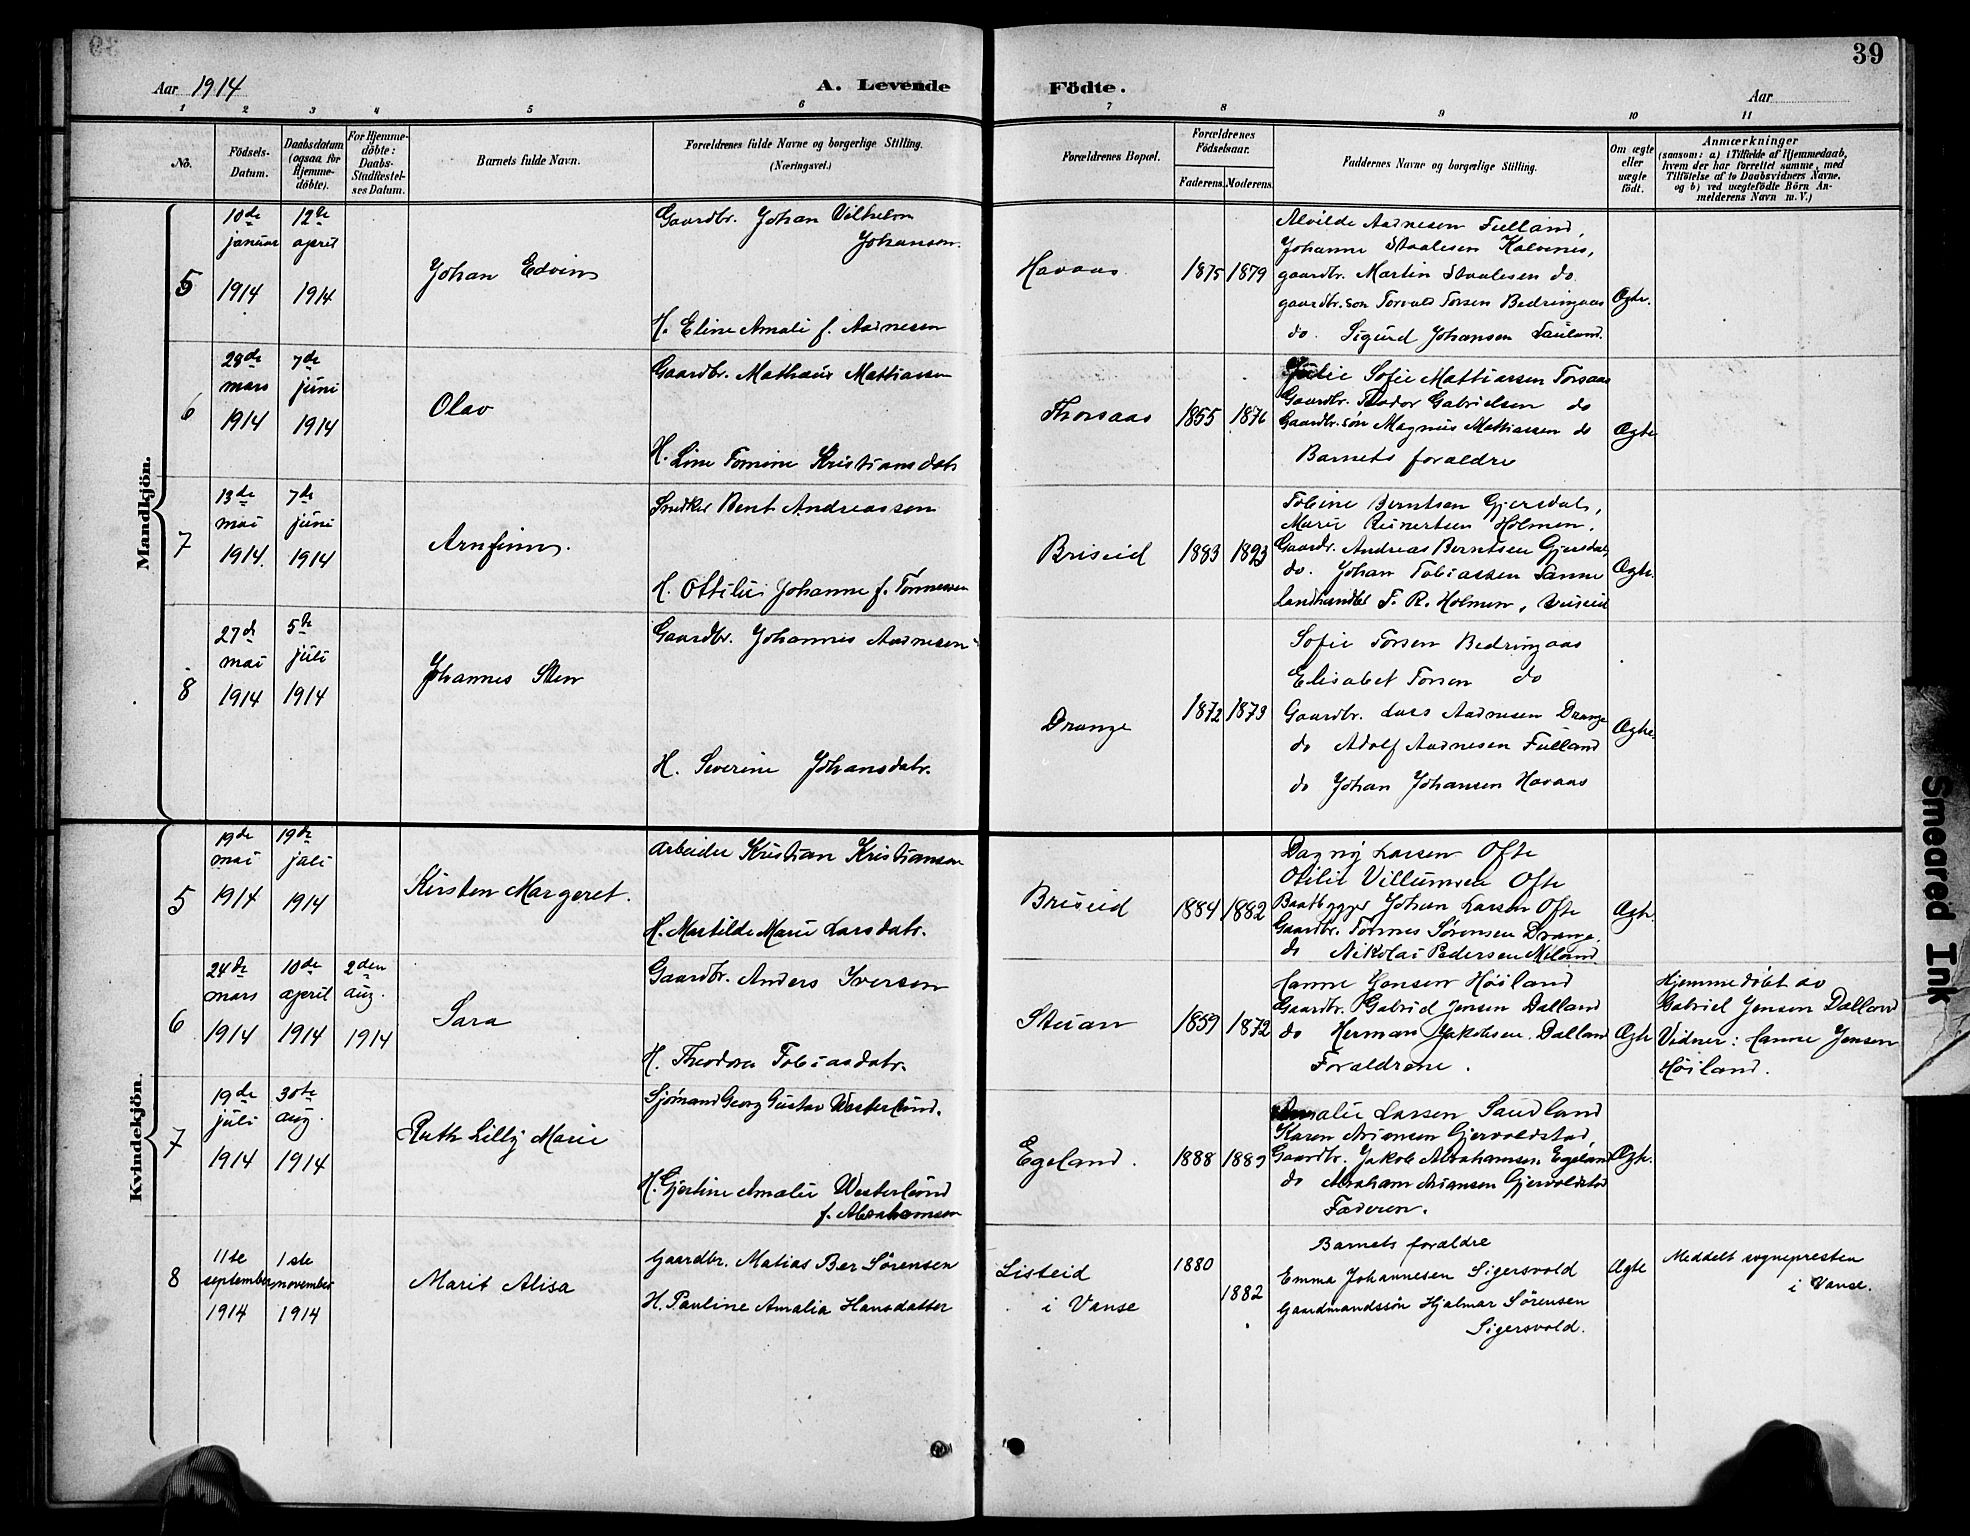 39
Aar 1914
A. Levende Födte.
Aar
1 2 3 4 5 6 7 8 9 10 11
No.
Födsels-Datum.
Daabsdatum (ogsaa for Hjemmedöbte).
For Hjemmedöbte: Daabs-Stadfæstelses Datum.
Barnets fulde Navn.
Forældrenes fulde Navne og borgerlige Stilling.
(Næringsvei.)
Forældrenes Bopæl.
Forældrenes Födselsaar.
Faderens. Moderens.
Faddernes Navne og borgerlige Stilling.
Om ægte eller uægte født.
Anmærkninger
(saasom: a) i Tilfælde af Hjemmedaab,
hvem der har forrettet samme, med
Tilföielse af to Daabsvidners Navne.
og b) ved uægtefödte Börn An-
melderens Navn m. V.)
Mandkjön.
5
10de januar 1914
12te april 1914
Johan Edvin
Gaardbr. Johan Vilhelm
Johansen.
H. Eline Amali f. Aadnesen
Havaas
1875 1879
Alvilde Aadnesen Fuland,
Johanne Staalesen Kalvenes,
gaardbr. Martin Staalesen do
gaardbr.søn Torvald Torsen Bedringaas
do. Sigurd Johansen Fauland.
Ægte.
6
28de mars 1914
7de juni 1914
Olav
Gaardbr. Mathæus Mattiassen
H. Line Tomine Kristiansdatr
Thorsaas
1855 1876
Julie Sofie Mattiassen Torsaas
Gaardbr. Teodor Gabrielsen do
Gaardbr.søn Magnus Mattiassen do
Barnets foraldre
Ægte
7
13de mai 1914.
7de juni 1914
Arnfinn.
Snedker Bent Andreassen
H. Ottilie Johanne f. Tønnessen
Briseid
1883 1893
Tobine Berntsen Gjersdal,
Marie Reinertsen Holmen,
Gaardbr. Andreas Berntsen Gjersdal,
do. Johan Tobiassen Sanne
Landhandler F. R. Holmen, Briseid
Ægte.
8
27de mai 1914
5te juli 1914
Johannes Sten
Gaardbr. Johannes Aadnesen
H. Severine Johansdatr.
Drange
1872 1873
Sofie Torsen Bedringaas
Elisabet Torsen do
Gaardbr. Lars Aadnesen Drange
do Adolf Aadnesen Fuland
do Johan Johansen Havaas
Ægte
Kvindekjön.
5
19de mai 1914
19de juli 1914
Kirsten Margeret.
Arbeider Kristian Kristiansen
H. Martilde Marie Larsdatr.
Briseid
1884 1882
Dagny Larsen Ofte
Otilie Villumsen Ofte
Baatbygger Johan Larsen Ofte
Gaardbr. Tønnes Sørensen Drange.
do Nikolai Pedersen Meland.
Ægte.
6
24de mars 1914
10de april 1914
2den aug. 1914
Sara
Gaardbr. Anders Iversen
H. Theodora Tobiasdatr.
Stuan
1859 1872
Hanne Jensen Høiland
Gaardbr. Gabriel Jensen Dalland
do Herman Jakobsen Dalland
Foraldrene.
Ægte
Hjemmedøbt av
Gabriel Jensen Dalland
Vidner: Hanne Jensen
Høiland.
7
19de juli 1914
30te aug. 1914
Ruth Lilly Marie
Sjømand Georg Gustav Westerlund.
H. Gjertine Amalie Westerlund
f. Abrahamsen
Egeland.
1888 1889
Amalie Larsen Sandland
Karen Arjansen Gjervoldstad,
Gaardbr. Jakob Abrahamsen Egeland
do Abraham Arjansen Gjervoldstad
Faderen.
Ægte.
8
11te september 1914
1ste november 1914
Marit Alisa
Gaardbr. Matias Ber Sørensen
H. Pauline Amalia Hansdatter
Listeid
i Vanse
1880
1882
Barnets foraldre
Emma Johannesen Sigersvold
Gaardmandssøn Hjalmar Sørensen
Sigersvold.
Ægte
Meddelt sognepresten
i Vanse.
Smeared Ink